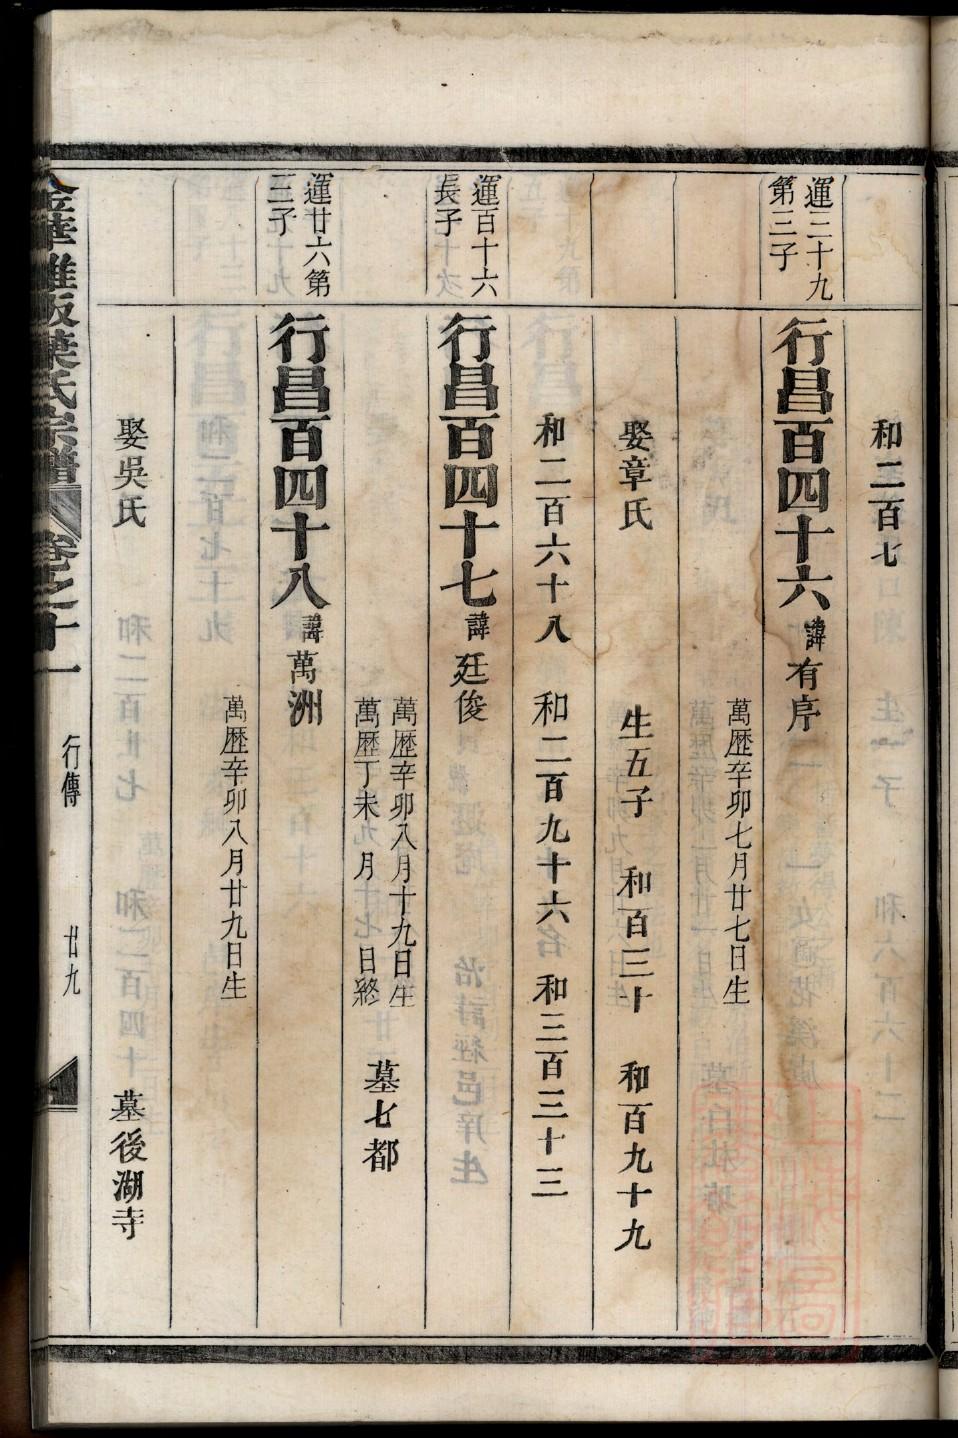 和二百七
運三十九
第三子
行昌百四十六諱有序
萬歷辛卯七月廿七日生
娶章氏 生五子 和百三十 和百九十九
和二百六十八 和二百九十六 和三百三十三
運百十六
長子
行昌百四十七諱廷俊
萬歷辛卯八月十九日生
萬歷丁未九月 日終
墓七都
運廿六第
三子
行昌百四十八諱萬洲
萬歷辛卯八月廿九日生
娶吳氏 墓後湖寺
金華雅畈葉氏宗譜 卷之十一 行傳 廿九